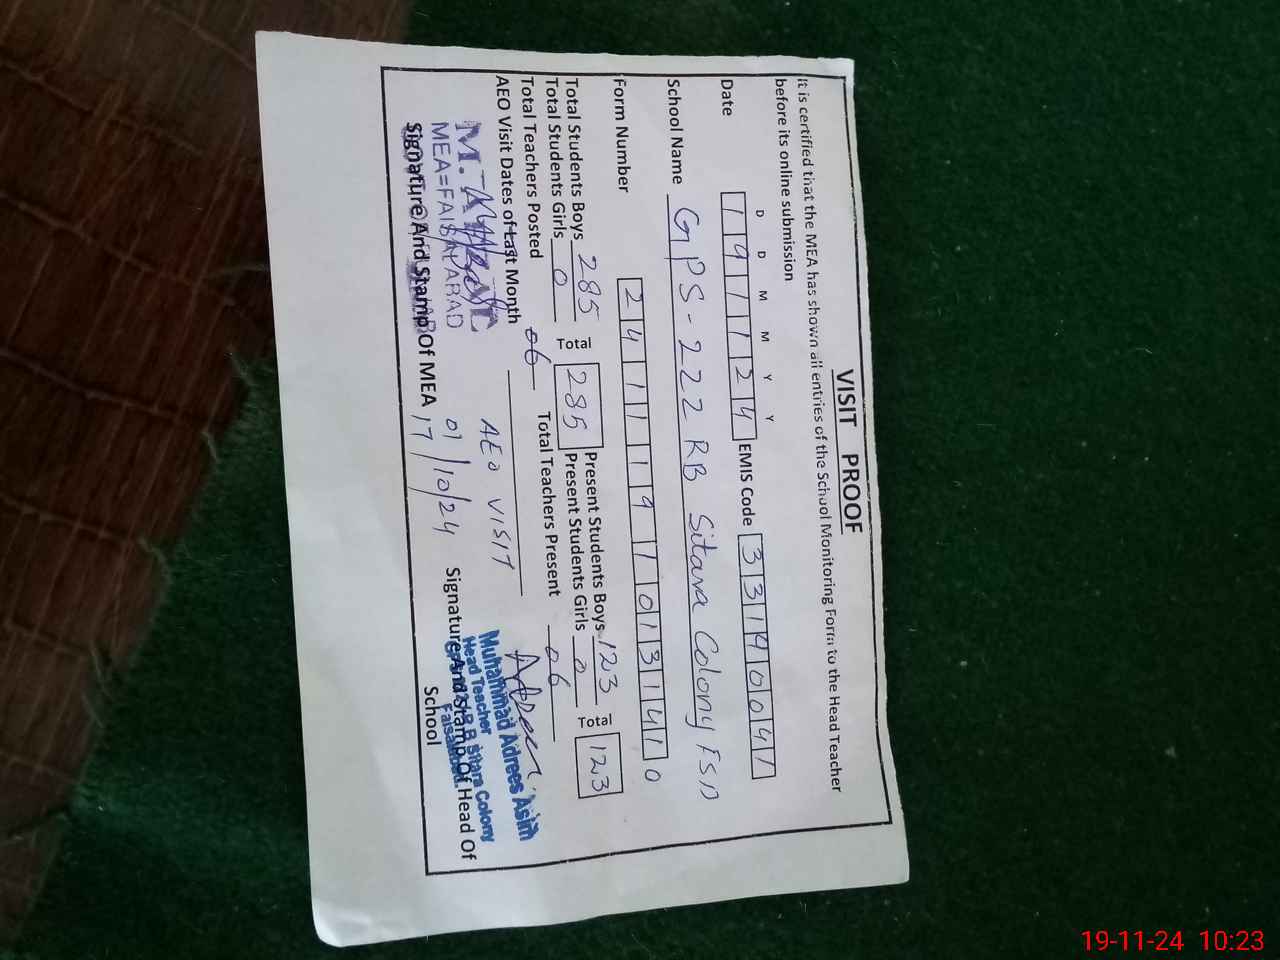 VISIT PROOF
It is certified that the MEA has shown all entries of the School Monitoring Form to the Head Teacher
before its online submission
D D M M Y Y
Date 1 9 1 1 2 4 EMIS Code 3 3 1 9 0 0 4 1
School Name GPS-222 RB Sitara Colony FSD
Form Number 2 4 1 1 1 9 1 0 1 3 1 4 1 0
Total Students Boys 285 Total 285 Present Students Boys 123 Total 123
Total Students Girls 0 Present Students Girls 0
Total Teachers Posted 06 Total Teachers Present 06
AEO Visit Dates of Last Month
AEO VISIT
01/10/24
17
MEA=FAISALABAD
Signature And Stamp Of MEA
Muhammad Adrees Asim
Head Teacher
R.B Sitara Colony
Signature And Stamp Of Head Of
School
19-11-24 10:23